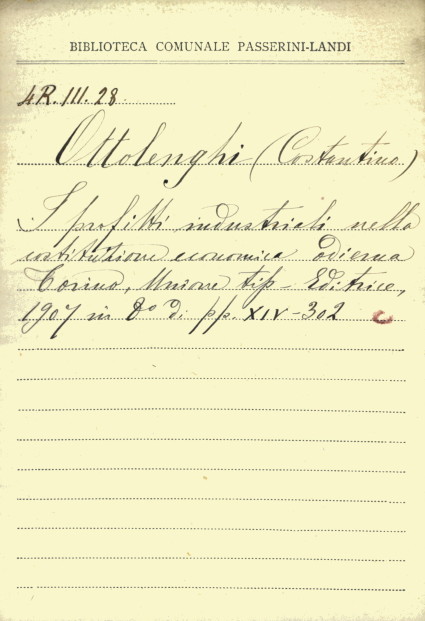 BIBLIOTECA COMUNALE PASSERINI-LANDI
4R.III.28
Ottolenghi (Costantino)
I profitti industriali nella
costituzione economica odierna
Torino, Unione tip-Editrice,
1907 in 8° di pp. XIV-302